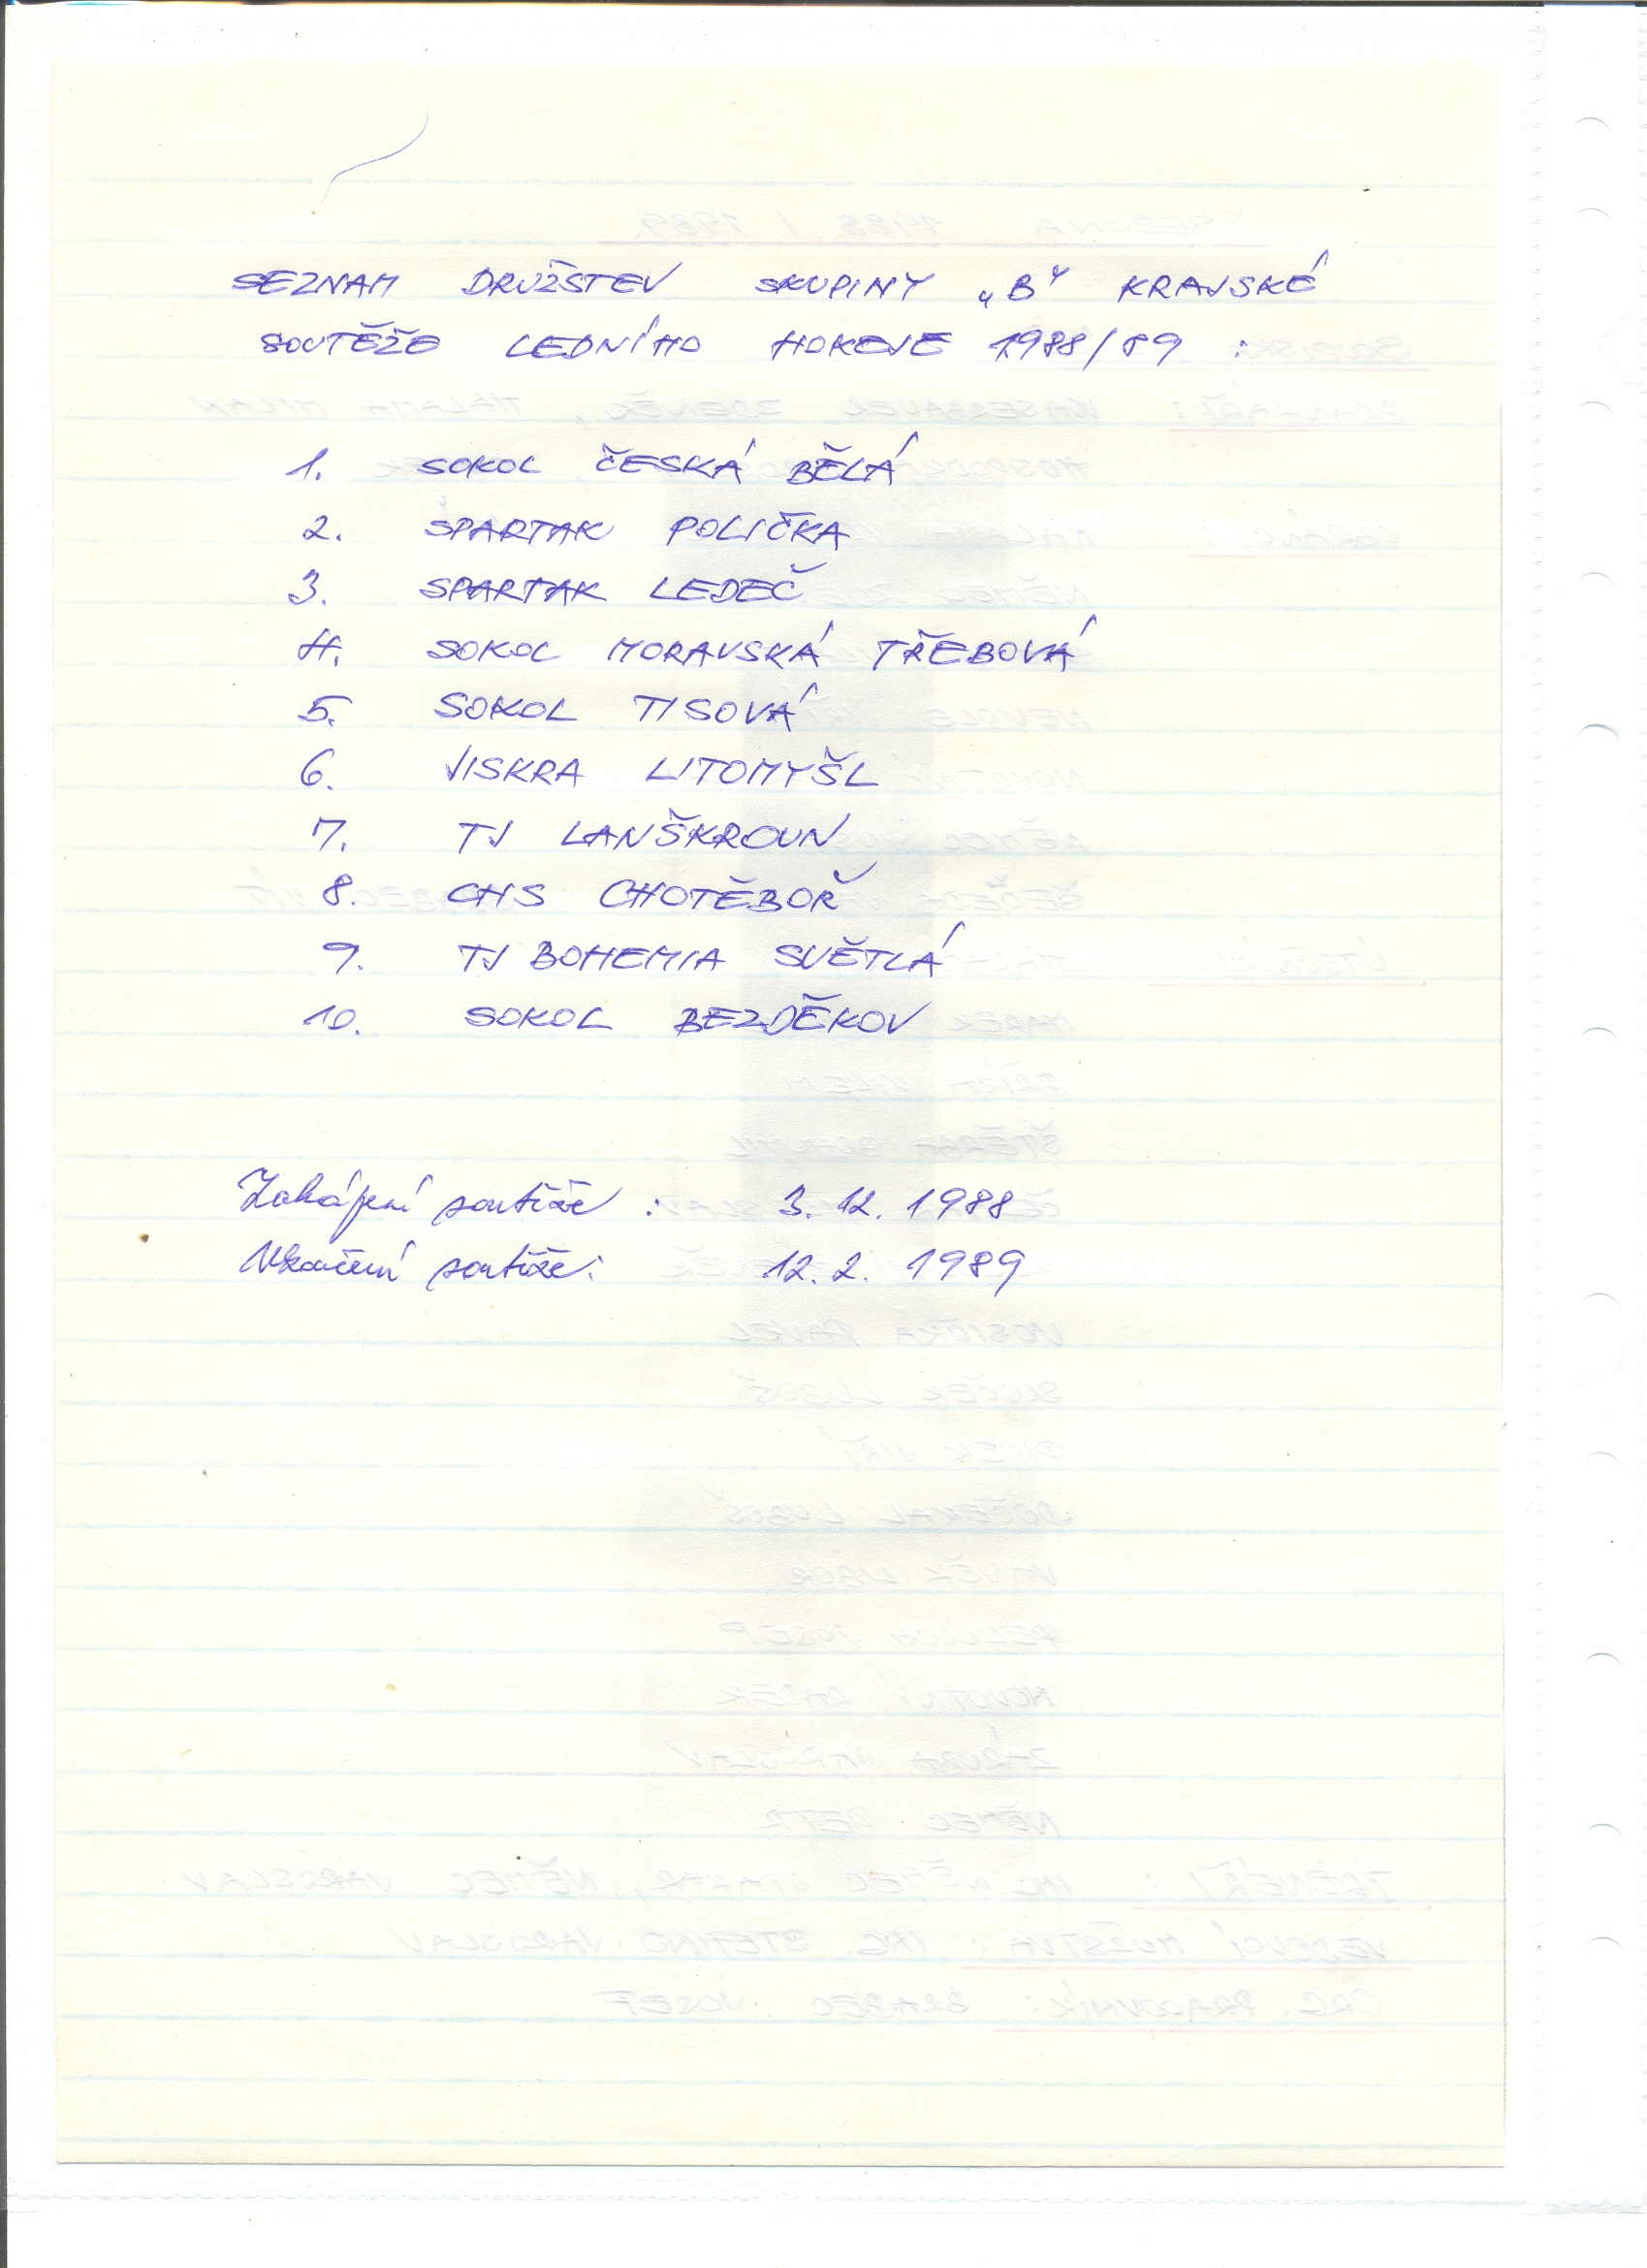 SEZNAM DRUŽSTEV SKUPINY „B" KRAJSKÉ
SOUTĚŽE LEDNÍHO HOKEJE 1988/89 :
1. SOKOL ČESKÁ BĚLÁ
2. SPARTAK POLIČKA
3. SPARTAK LEDEČ
4. SOKOL MORAVSKÁ TŘEBOVÁ
5. SOKOL TISOVÁ
6. JISKRA LITOMYŠL
7. TJ LANŠKROUN
8. CHS CHOTĚBOŘ
9. TJ BOHEMIA SVĚTLÁ
10. SOKOL BEZDĚKOV
Zahájení soutěže : 3. 12. 1988
Ukončení soutěže: 12. 2. 1989